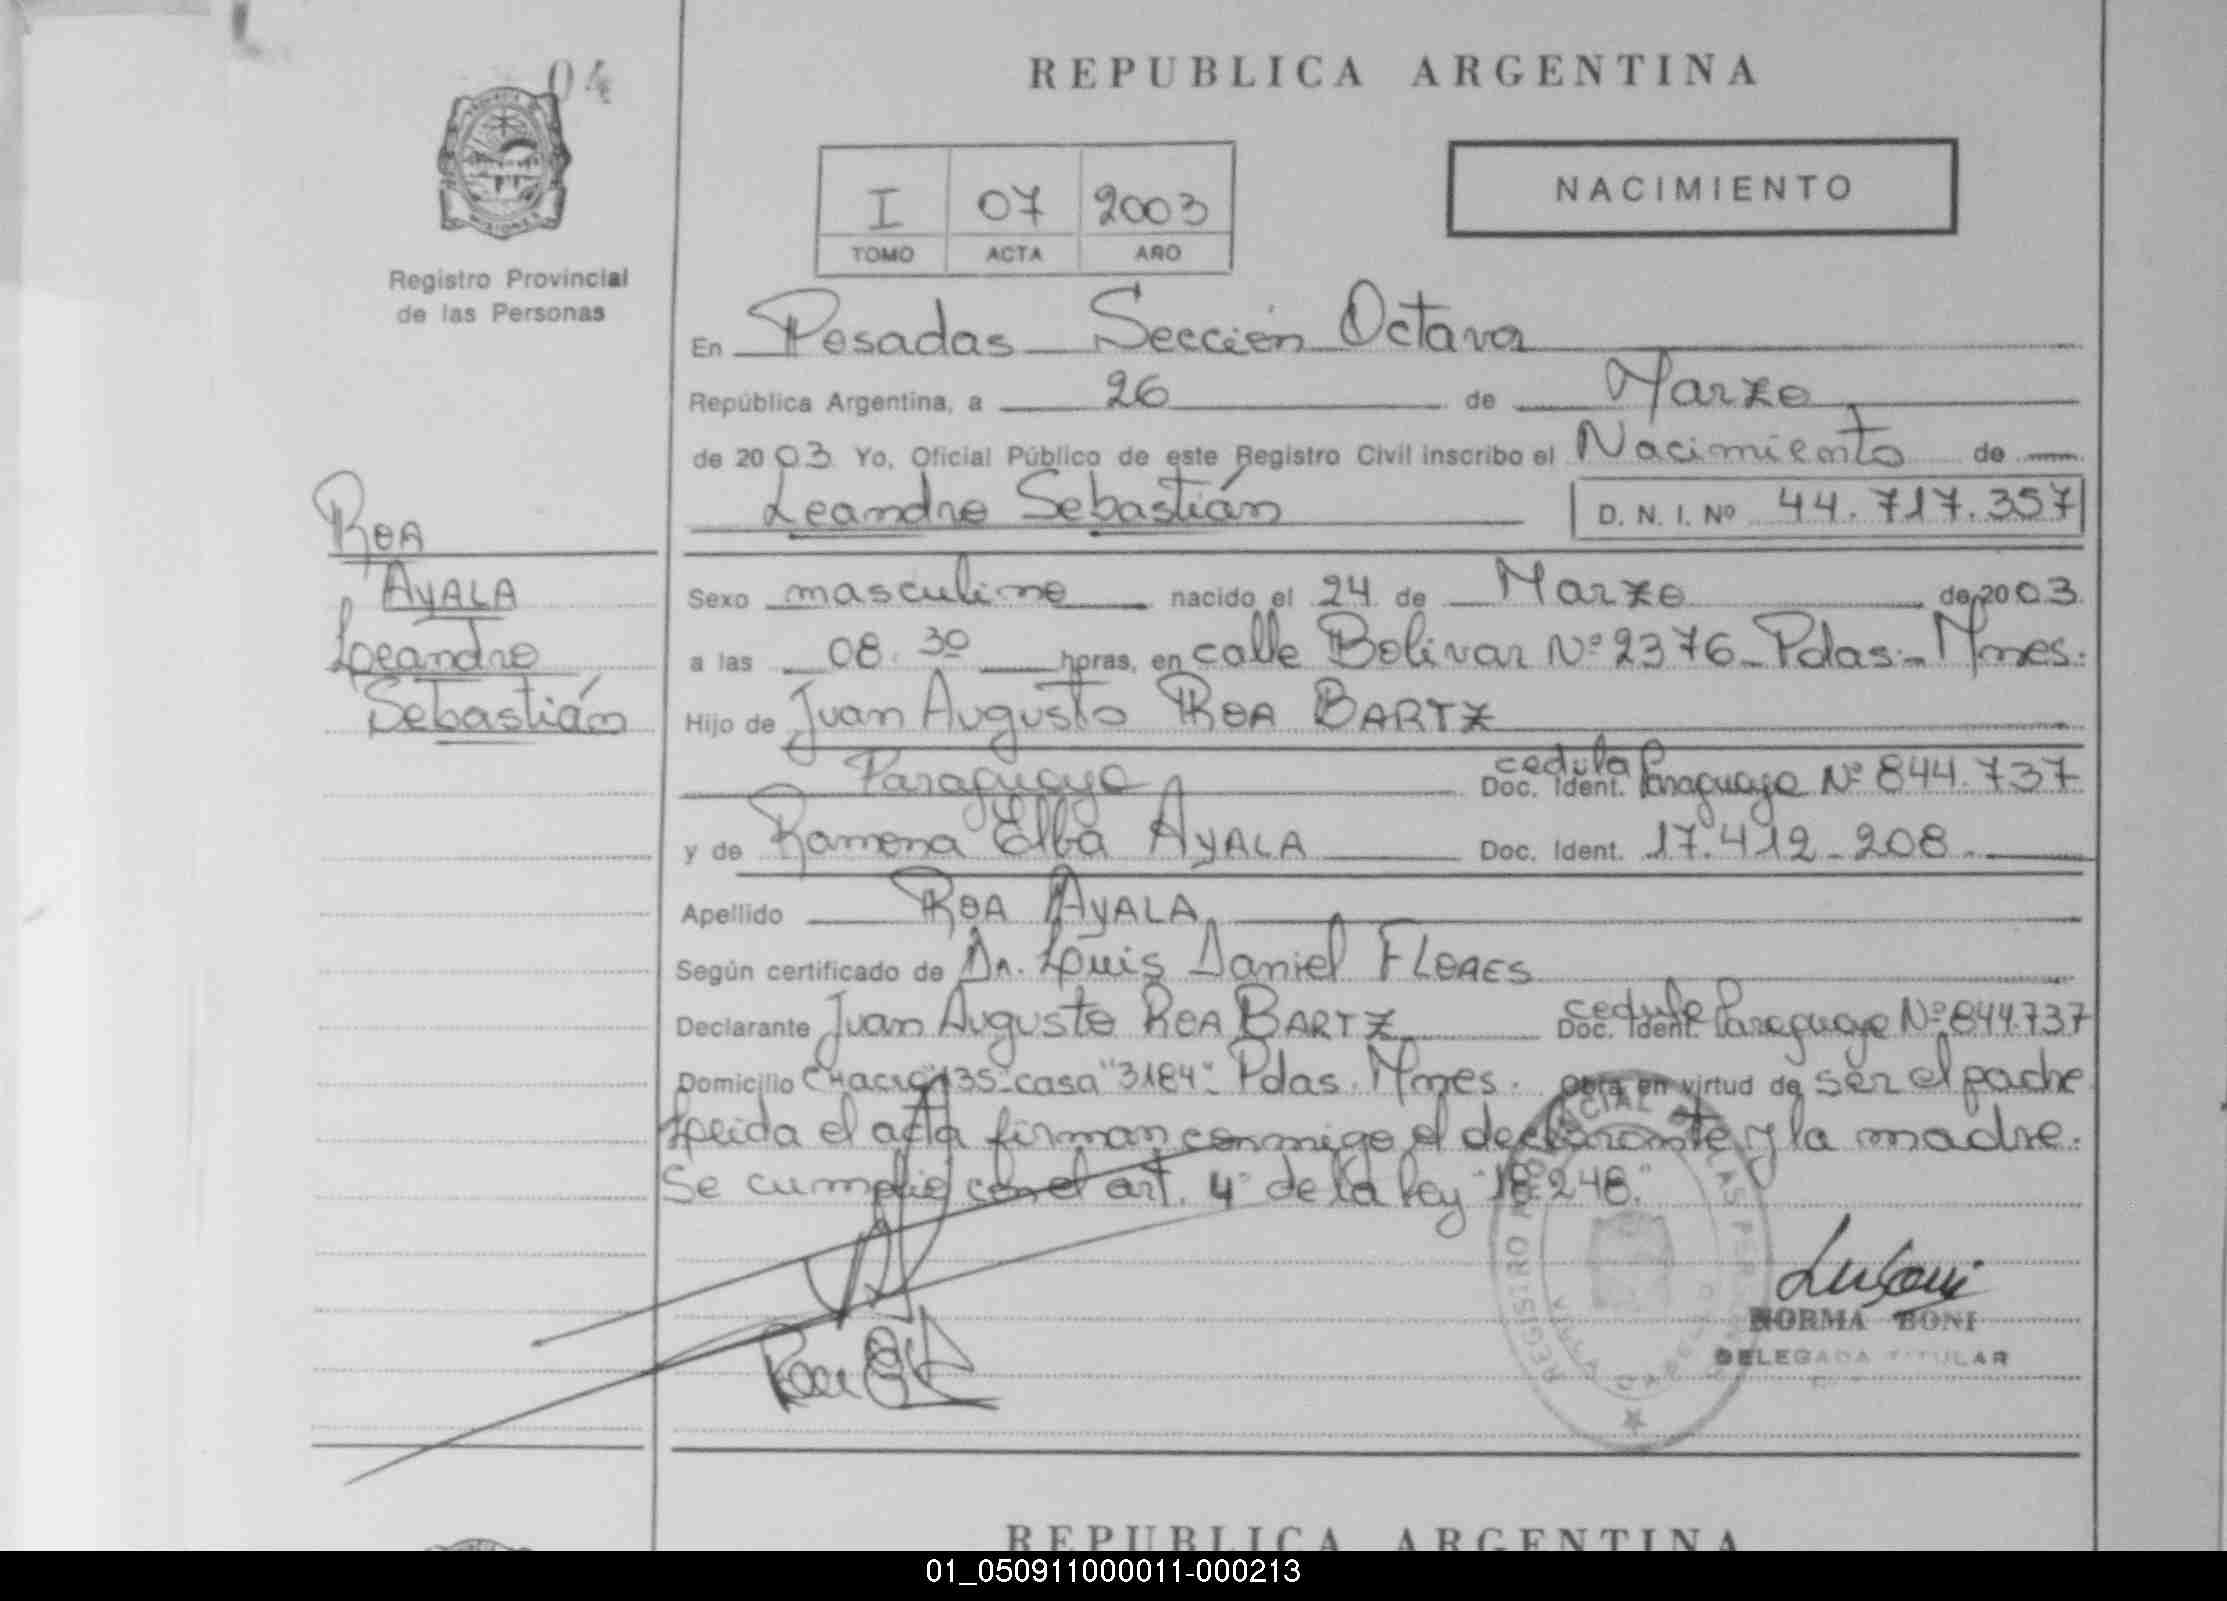 04
REPUBLICA ARGENTINA
NACIMIENTO
I 07 2003
TOMO ACTA AÑO
Registro Provincial
de las Personas
En Posadas Sección Octava
República Argentina, a 26 de Marzo
de 2003 Yo, Oficial Público de este Registro Civil inscribo el Nacimiento de
Leandro Sebastián D. N. I. Nº 44.717.357
ROA
AYALA
Leandro
Sebastián
Sexo masculino nacido el 24 de Marzo de 2003
a las 08.30 horas, en calle Bolivar Nº 2376 Pdas.- Mnes.
Hijo de Juan Augusto ROA BARTZ
Paraguayo Doc. Ident. cedula Paraguaya Nº 844.737
y de Ramona Elba AYALA Doc. Ident. 17.412.208.
Apellido ROA AYALA
Según certificado de Dr. Luis Daniel FLORES
Declarante Juan Augusto ROA BARTZ Doc. Ident. cedula Paraguaya Nº 844.737
Domicilio Chacra "135" casa "3184" Pdas. Mnes. Obra en virtud de ser el padre
Leida el acta firman conmigo el declarante y la madre.
Se cumplió con el art. 4º de la Ley "18.248."
REGISTRO PROVINCIAL DE LAS PERSONAS
VILLA CABELLO
NORMA BONI
DELEGADA TITULAR
REPUBLICA ARGENTINA
01_050911000011-000213